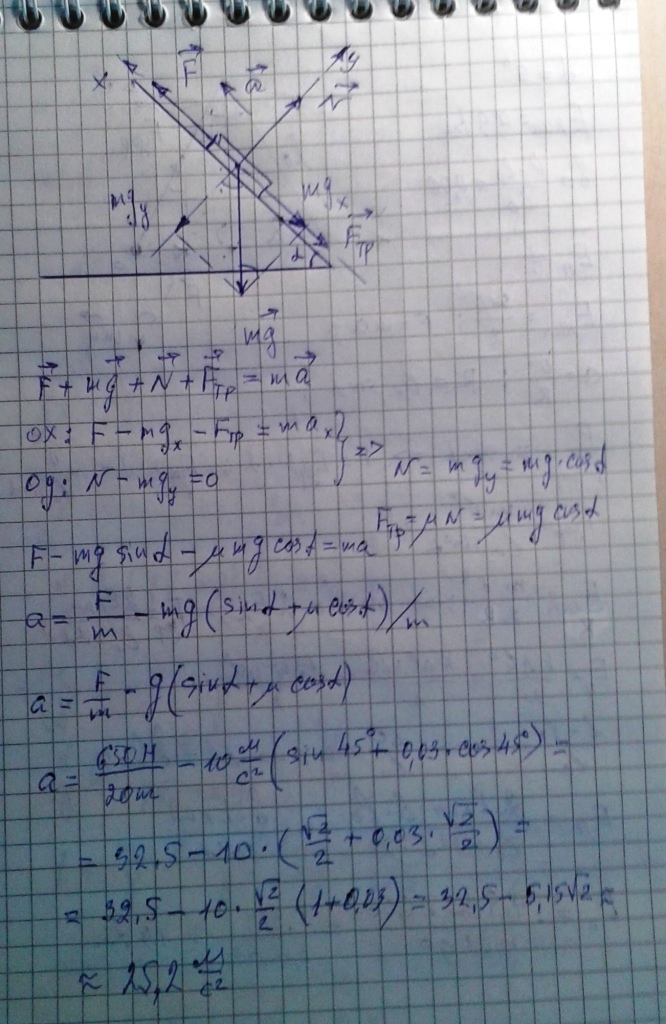 x F⃗ a⃗ y
N⃗
mg_y mg_x
F⃗_тр
α
mg⃗
F⃗ + mg⃗ + N⃗ + F⃗_тр = ma⃗
OX: F − mg_x − F_тр = ma_x } =>
Oy: N − mg_y = 0
N = mg_y = mg·cosα
F_тр = μN = μmg cosα
F − mg sinα − μmg cosα = ma
a = F/m − mg(sinα + μ cosα)/m
a = F/m − g(sinα + μ cosα)
a = 650Н/20кг − 10 м/с² (sin 45° + 0,03·cos 45°) =
= 32,5 − 10·(√2/2 + 0,03·√2/2) =
= 32,5 − 10·√2/2 (1+0,03) = 32,5 − 5,15√2 ≈
≈ 25,2 м/с²